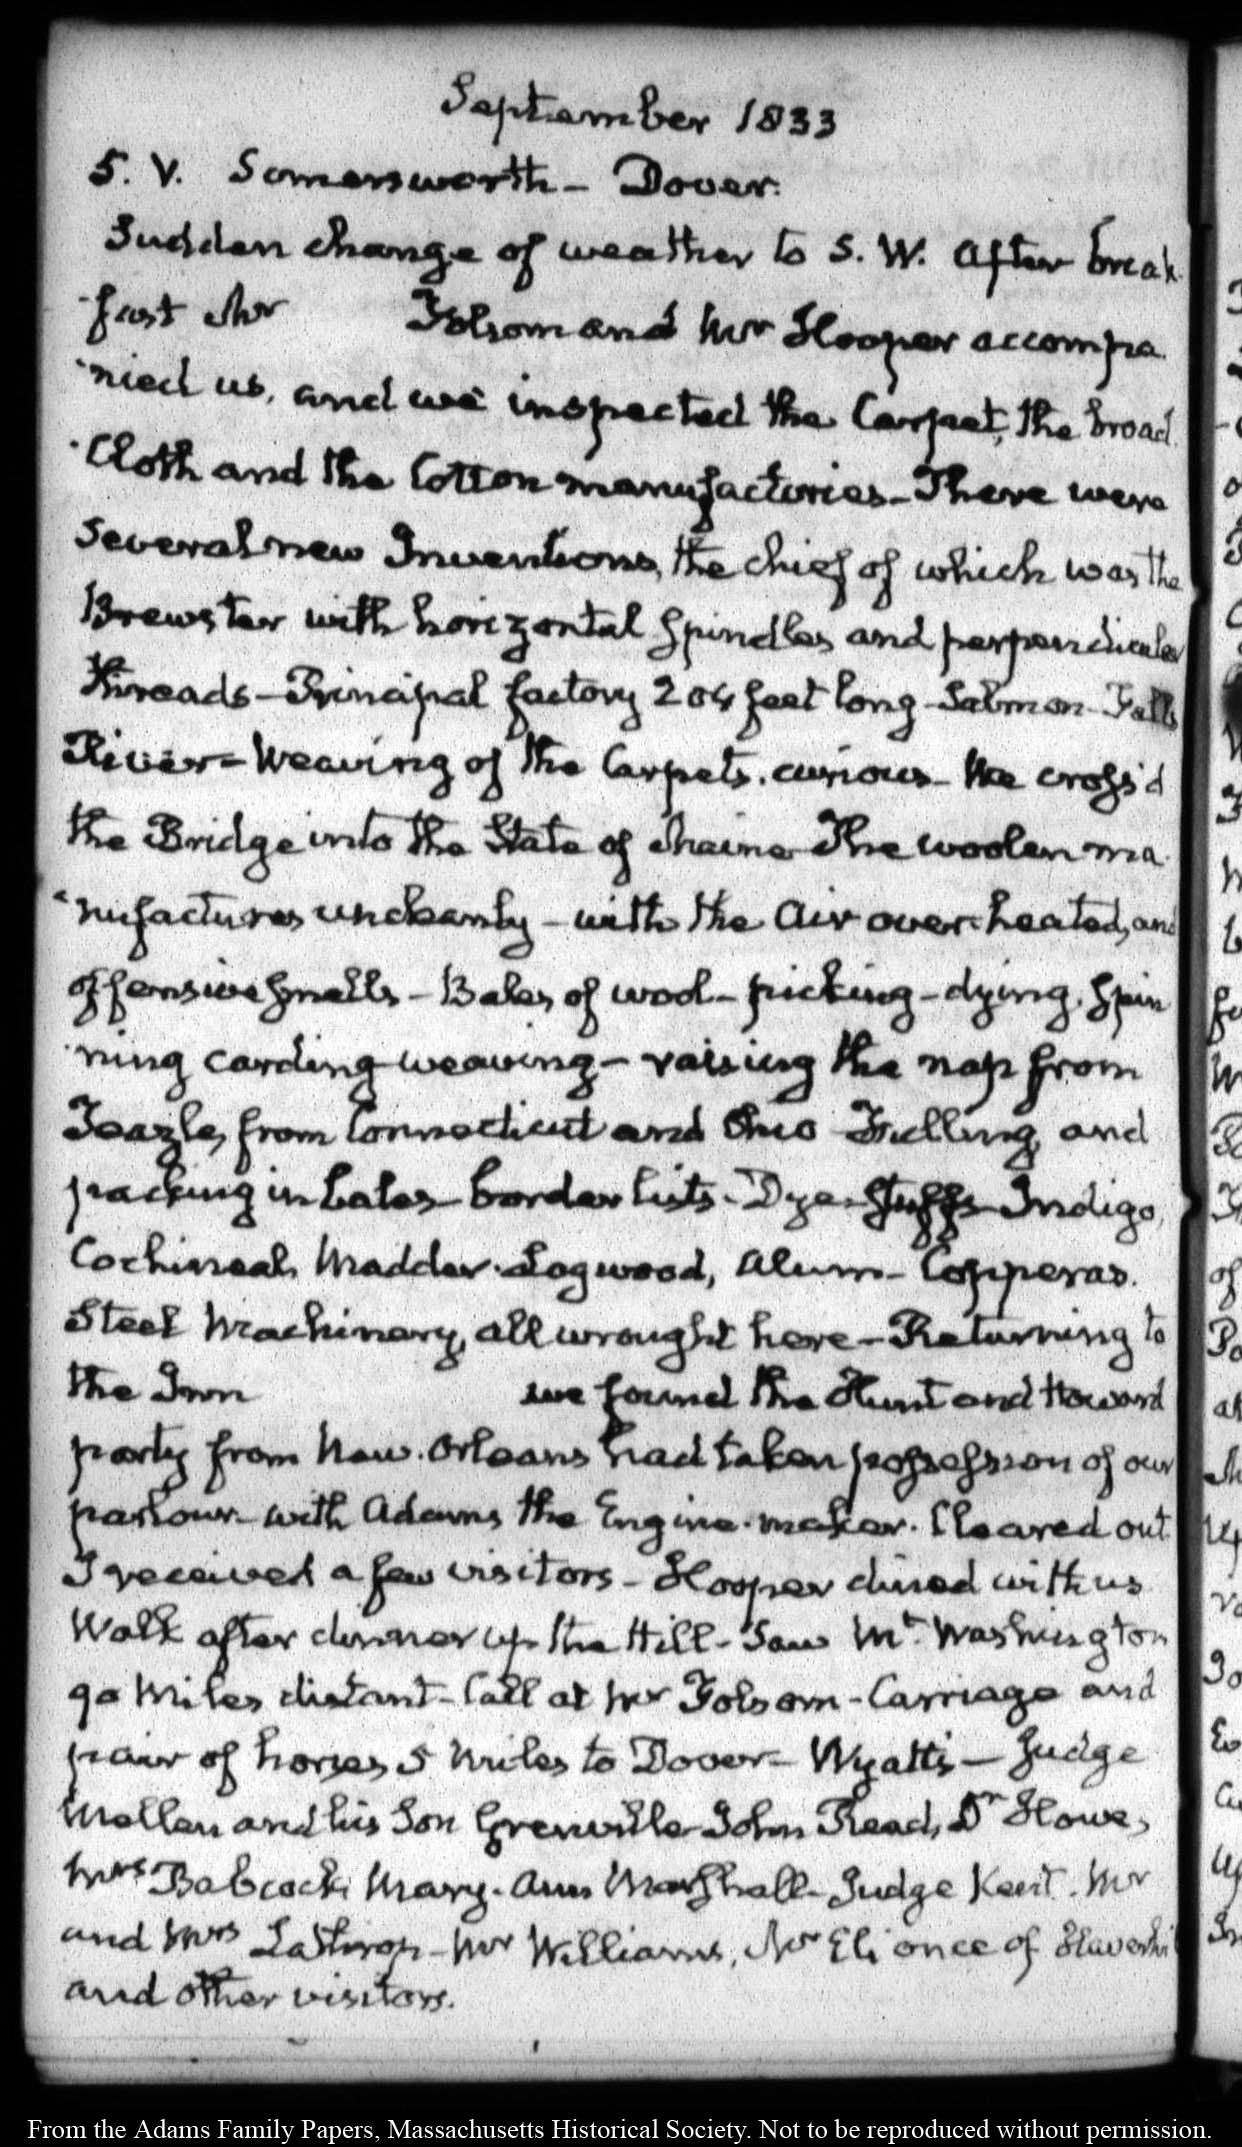 September 1833
5. V. Somersworth - Dover.
Sudden change of weather to S. W. After break
-fast Mr Folsom and Mr Hooper accompa
-nied us, and we inspected the Carpet, the broad
-Cloth and the Cotton manufactories - There were
several new Inventions, the chief of which was the
Brewster with horizontal Spindles and perpendicular
threads - Principal factory 204 feet long - Salmon Falls
River - Weaving of the Carpets. curious - We cross'd
the Bridge into the State of Maine - The woolen ma
-nufactures uncleanly - with the Air over-heated, and
offensive smells - Bales of wool - picking - dying, Spin
-ning carding weaving - raising the nap from
Teazle, from Connecticut and Ohio - Fulling, and
packing in bales - border lists - Dye-Stuffs - Indigo,
Cochineal, Madder. Logwood, Alum - Copperas.
Steel Machinery, all wrought here - Returning to
the Inn we found the Hunt and Howard
party from New-Orleans had taken possession of our
parlour - with Adams, the Engine-maker. Cleared out
I received a few visitors - Hooper dined with us
Walk after dinner up the Hill - Saw Mt. Washington
90 Miles distant - Call at Mr Folsom - Carriage and
pair of horses 5 Miles to Dover - Wyatt's - Judge
Mellen and his Son Grenville - John Read, Dr Howe,
Mrs Babcock, Mary-Ann Marshall - Judge Kent. Mr
and Mrs Lathrop - Mr Williams, Mr Eli once of Haverhil
and other visitors.
From the Adams Family Papers, Massachusetts Historical Society. Not to be reproduced without permission.